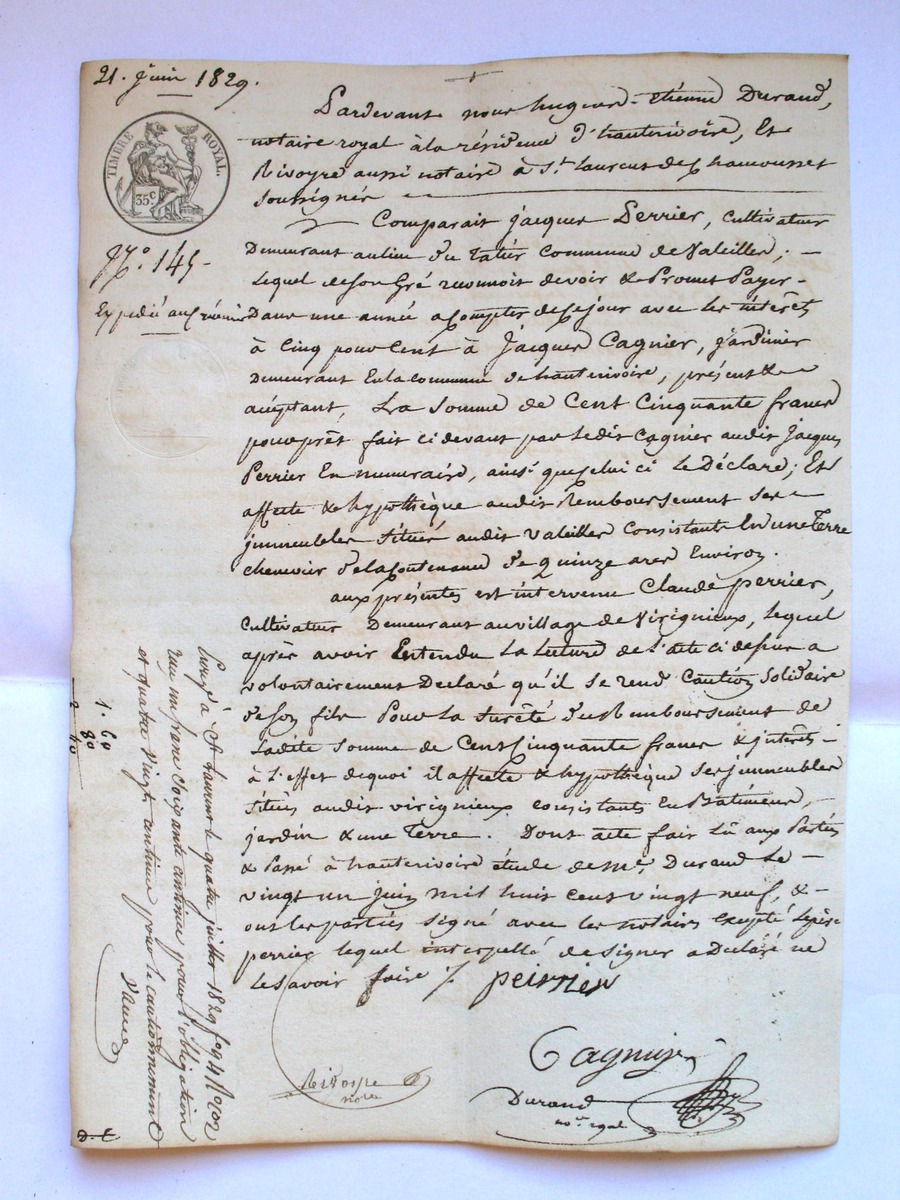 21. juin 1829.
TIMBRE ROYAL.
35 c
N.º 145-
Expédié au créancier
Pardevant nous hugues-Etienne Durand,
notaire royal à la résidence d'hauterivoire, Et
Rivoyre aussi notaire à St. Laurent de Chamousset
soussignés
Comparait jacques Perrier, cultivateur
Demeurant au lieu du Tatier Commune de Valeilles; -
lequel de son Gré reconnoit devoir & Promet Payer -
Dans une année a compter de ce jour avec les intérêts
à Cinq pour Cent à Jacques Cagnier, jardinier
demeurant En la commune de hauterivoire, présent &
acceptant, La Somme de Cent Cinquante francs
pour prêt fait ci devant par ledit Cagnier audit Jacques
Perrier En numeraire, ainsi que celui ci Le Déclare; Et
affecte & hypothèque audit Remboursement ses
immeubles situés audit Valeilles Consistants En une Terre
chenevier de la Contenance de quinze ares Environ.
aux présentes est intervenu Claude perrier,
Cultivateur Demeurant au village de Virignieux, lequel
après avoir Entendu La Lecture de l'acte ci dessus a
volontairement Declaré qu'il se rend Caution Solidaire
de Son fils Pour La Sureté du Remboursement de
Ladite Somme de Cent Cinquante francs & intérêts -
à L'effet de quoi il affecte & hypothèque ses immeubles
situés audit virignieux consistants En Bâtiments, -
jardin & une Terre. Dont acte fait Lû aux Parties
& Passé à hauterivoire étude de Me. Durand Le -
vingt un Juin mil huit cent vingt neuf, & -
ont les parties signé avec les notaires Excepté le père
perrier lequel interpellé de signer a Declaré ne
le savoir faire ./.
peirrier
Cagnier
Rivoire
nore
Durand
nore. royal
à St Laurent le quatre juillet 1829 fo 94
un franc soixante centimes pour l'obligation
et quatre Vingt centimes pour le cautionnement
1. 60
80
2 40